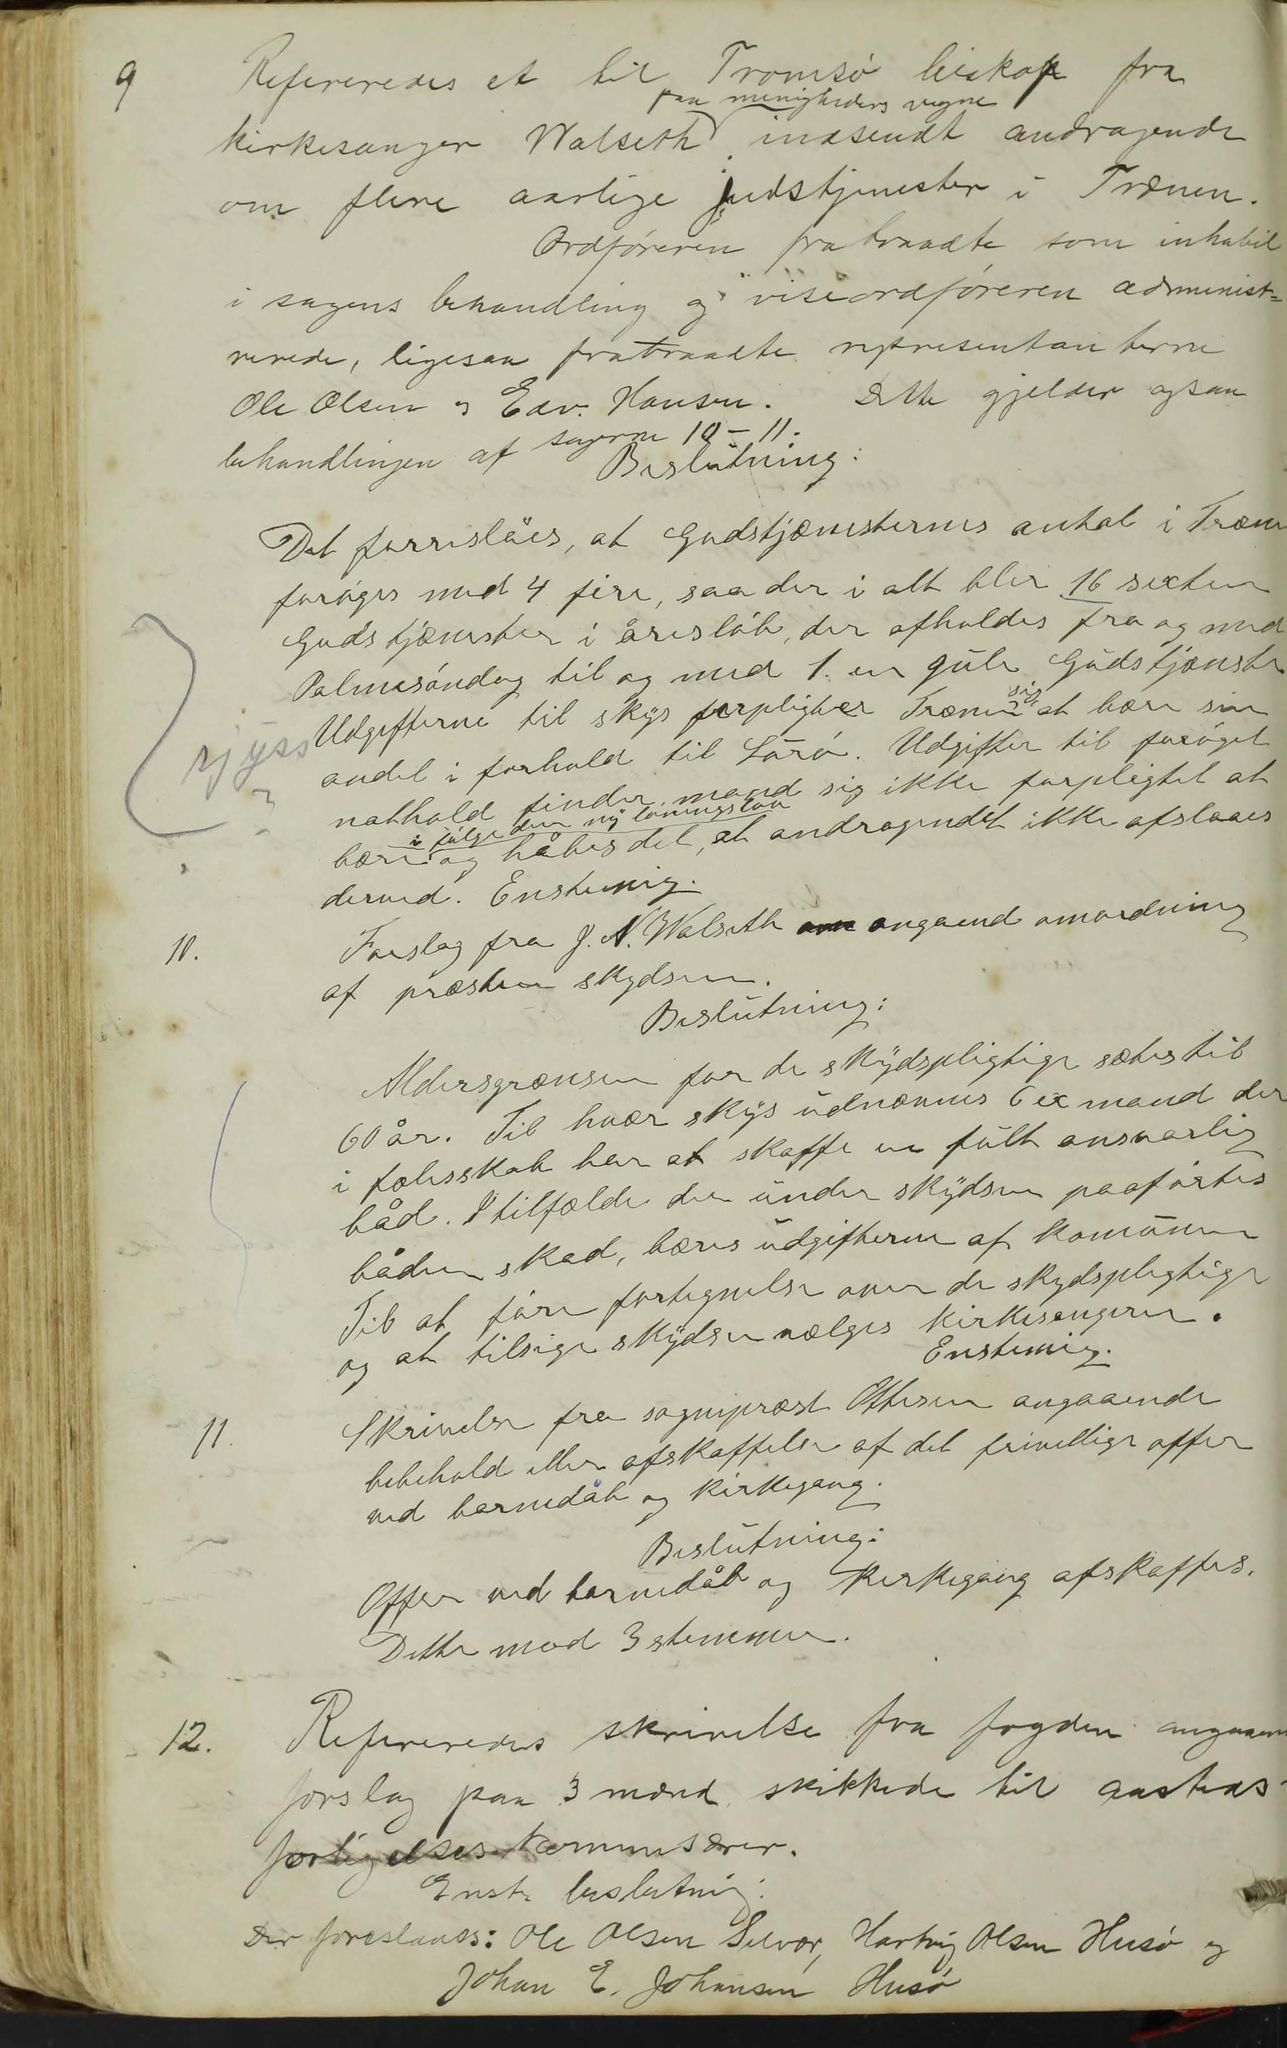 9 Refereredes et til Tromsø biskop fra
paa menighedens vegne
kirkesanger Walseth indsendt andragende
om flere aarlige gudstjenester i Trænen.
Ordføreren fratraadte som inhabil
i sagens behandling og viseordføreren administ=
rerede, ligesaa fratraadte representanterne
Ole Olsen og Edv. Hansen. Dette gjelder ogsaa
behandlingen af sagerne 10-11.
Beslutning:
Det forreslåes, at Gudstjænesternes antal i Træn
forøges med 4 fire, saa der i alt bler 16 sexten
Gudstjænester i åresløb, der afholdes fra og med
Palmesøndag til og med 1. en gule Gudstjænste
sig
Udgifterne til skys forpligter Trænen at bære sin
sjyss
?
andel i forhold til Lurø. Udgifter til forøget
nathold finder mand sig ikke forpligtet at
i følge den ny lønningslov
bære og håbes det, at andragendet ikke afslaaes
derved. Enstemig.
10. Forslag fra J. N. Walseth angaend omordning
af præstens skydsen.
Beslutning:
Aldersgrænsen for de skydspligtige sættes til
60 år. Til hvær skys udnævnes 6 ex mand der
i fælesskab har at skaffe en fult ansvarlig
båd. I tilfælde der under skydsen paaførtes
båden skad, bæres udgifterne af komunen
Til at føre fortegnelse over de skydspligtige
og at tilsige skydsen vælges kirkesangeren.
Enstemig.
11. Skrivelse fra sognepræst Ottesen angaaende
bebehold eller afskaffelse af det frivillige offer
ved barnedåb og kirkegang.
Beslutning:
Offer ved barnedåb og kirkegang afskaffes.
Dette mod 3 stemmer.
12. Refereredes skrivelse fra fogden angaaen
forslag paa 3 mænd skikkede til
forligelseskommisærer.
Enst. beslutning:
Der foreslaaes: Ole Olsen Selvær, Hartvig Olsen Husø og
Johan E. Johansen Husø